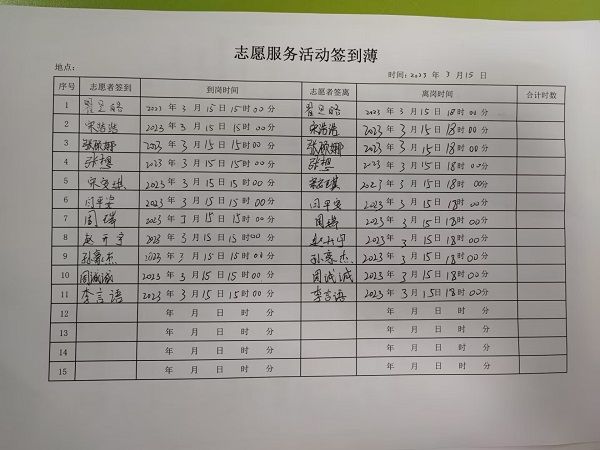 志愿服务活动签到薄
地点： 时间：2023 年 3 月 15 日
序号 志愿者签到 到岗时间 志愿者签离 离岗时间 合计时数
1 2023 年 3 月 15 日 15 时 00 分 2023 年 3 月 15 日 18 时 00 分
2 宋浩浩 2023 年 3 月 15 日 15 时 00 分 宋浩浩 2023 年 3 月 15 日 18 时 00 分
3 张硕娜 2023 年 3 月 15 日 15 时 00 分 张硕娜 2023 年 3 月 15 日 18 时 00 分
4 张想 2023 年 3 月 15 日 15 时 00 分 张想 2023 年 3 月 15 日 18 时 00 分
5 2023 年 3 月 15 日 15 时 00 分 2023 年 3 月 15 日 18 时 00 分
6 闫平安 2023 年 3 月 15 日 15 时 00 分 闫平安 2023 年 3 月 15 日 18 时 00 分
7 周瑞 2023 年 3 月 15 日 15 时 00 分 周瑞 2023 年 3 月 15 日 18 时 00 分
8 2023 年 3 月 15 日 15 时 00 分 2023 年 3 月 15 日 18 时 00 分
9 孙豪杰 2023 年 3 月 15 日 15 时 00 分 孙豪杰 2023 年 3 月 15 日 18 时 00 分
10 周诚诚 2023 年 3 月 15 日 15 时 00 分 周诚诚 2023 年 3 月 15 日 18 时 00 分
11 李言语 2023 年 3 月 15 日 15 时 00 分 李言语 2023 年 3 月 15 日 18 时 00 分
12 年 月 日 时 分 年 月 日 时 分
13 年 月 日 时 分 年 月 日 时 分
14 年 月 日 时 分 年 月 日 时 分
15 年 月 日 时 分 年 月 日 时 分